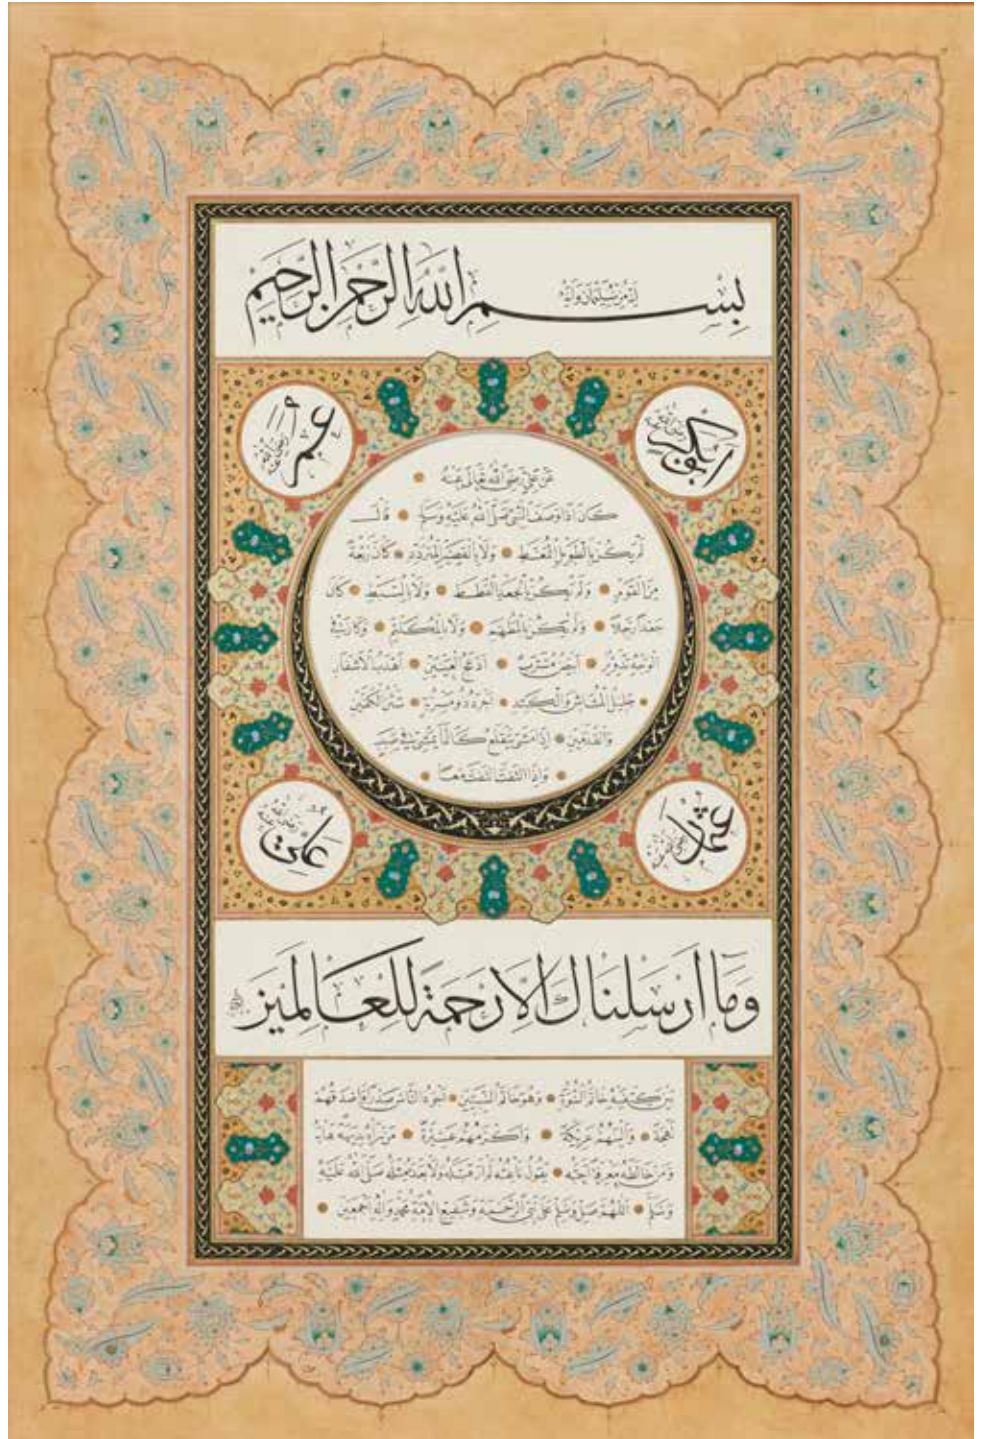 انه من سليمان وانه
بسم الله الرحمن الرحيم
ابوبكر رضي الله عنه
عمر رضي الله عنه
عن علي رضي الله تعالى عنه
كان اذا وصف النبي صلى الله عليه وسلم قال
لم يكن بالطويل الممغط ولا بالقصير المتردد كان ربعة
من القوم ولم يكن بالجعد القطط ولا بالسبط كان
جعدا رجلا ولم يكن بالمطهم ولا بالمكلثم وكان في
الوجه تدوير ابيض مشرب ادعج العينين اهدب الاشفار
جليل المشاش والكتد اجرد ذو مسربة شثن الكفين
والقدمين اذا مشى يتقلع كانما يمشي في صبب
واذا التفت التفت معا
عثمان رضي الله عنه
علي رضي الله عنه
وما ارسلناك الا رحمة للعالمين
بين كتفيه خاتم النبوة وهو خاتم النبيين اجود الناس صدرا واصدقهم
لهجة والينهم عريكة واكرمهم عشيرة من رآه بديهة هابه
ومن خالطه معرفة احبه يقول ناعته لم ار قبله ولا بعده مثله صلى الله عليه
وسلم اللهم صل وسلم على نبي الرحمة وشفيع الامة محمد واله اجمعين